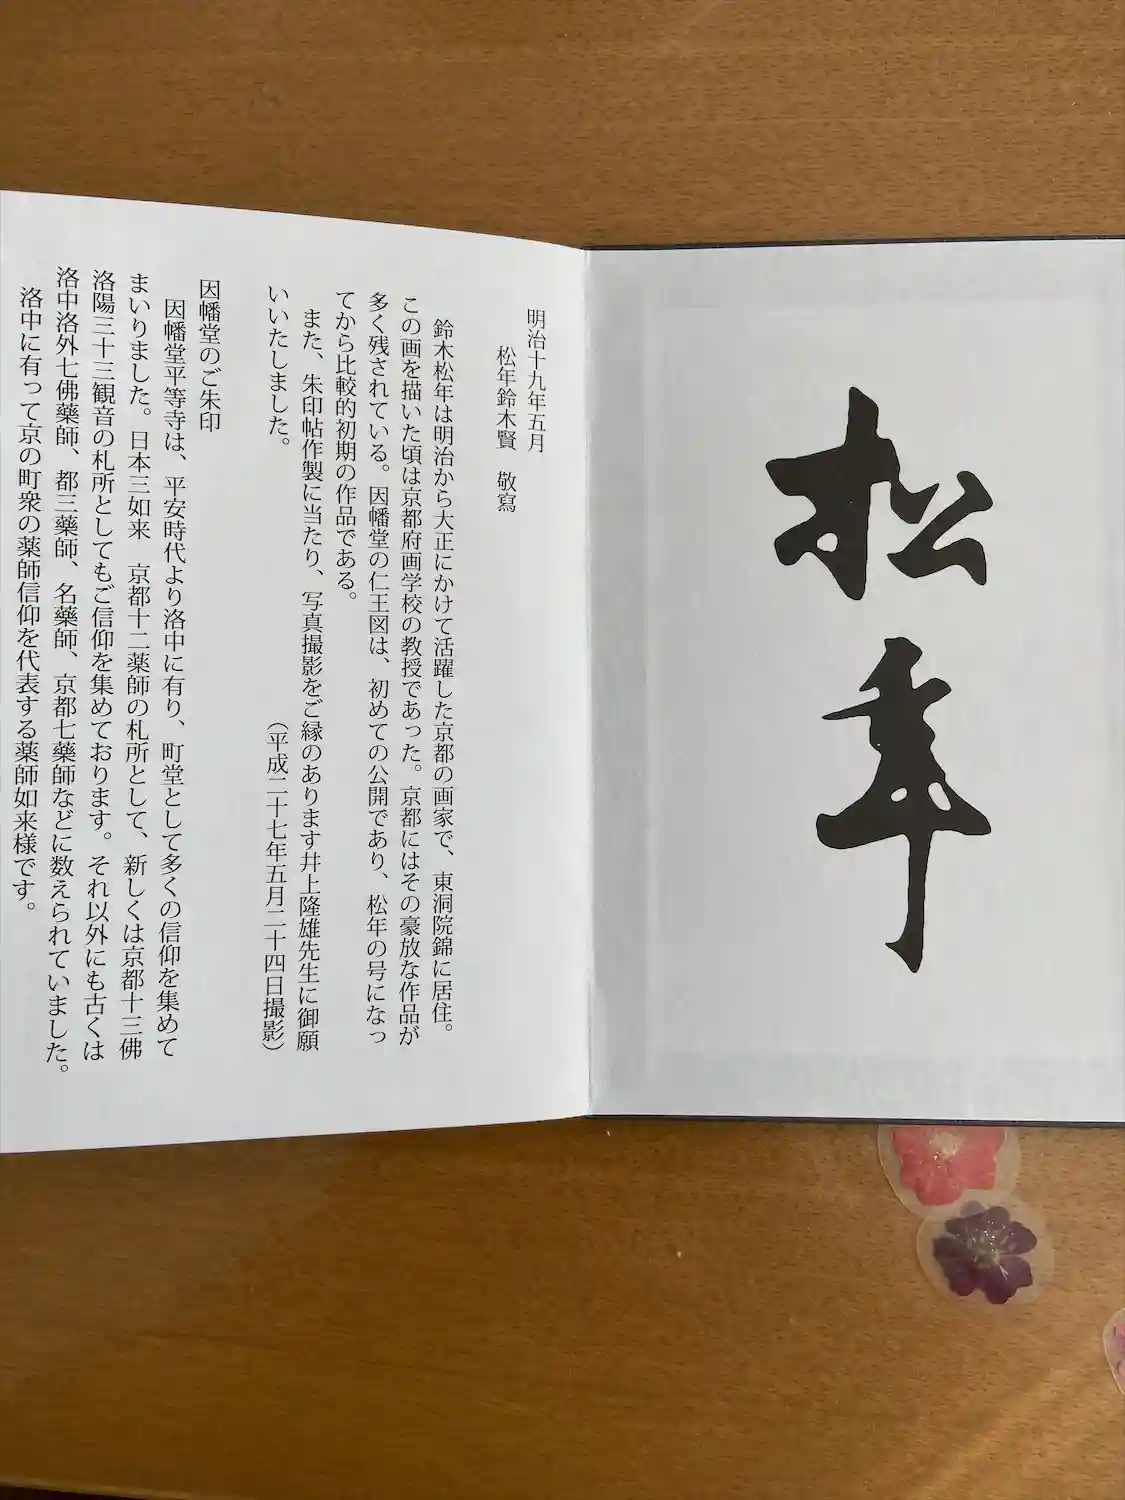 松年
明治十九年五月
松年鈴木賢　敬寫
鈴木松年は明治から大正にかけて活躍した京都の画家で、東洞院錦に居住。
この画を描いた頃は京都府画学校の教授であった。京都にはその豪放な作品が
多く残されている。因幡堂の仁王図は、初めての公開であり、松年の号になっ
てから比較的初期の作品である。
また、朱印帖作製に当たり、写真撮影をご縁のあります井上隆雄先生に御願
いいたしました。
（平成二十七年五月二十四日撮影）
因幡堂のご朱印
因幡堂平等寺は、平安時代より洛中に有り、町堂として多くの信仰を集めて
まいりました。日本三如来　京都十二薬師の札所として、新しくは京都十三佛
洛陽三十三観音の札所としてもご信仰を集めております。それ以外にも古くは
洛中洛外七佛藥師、都三藥師、名藥師、京都七藥師などに数えられていました。
洛中に有って京の町衆の薬師信仰を代表する薬師如来様です。